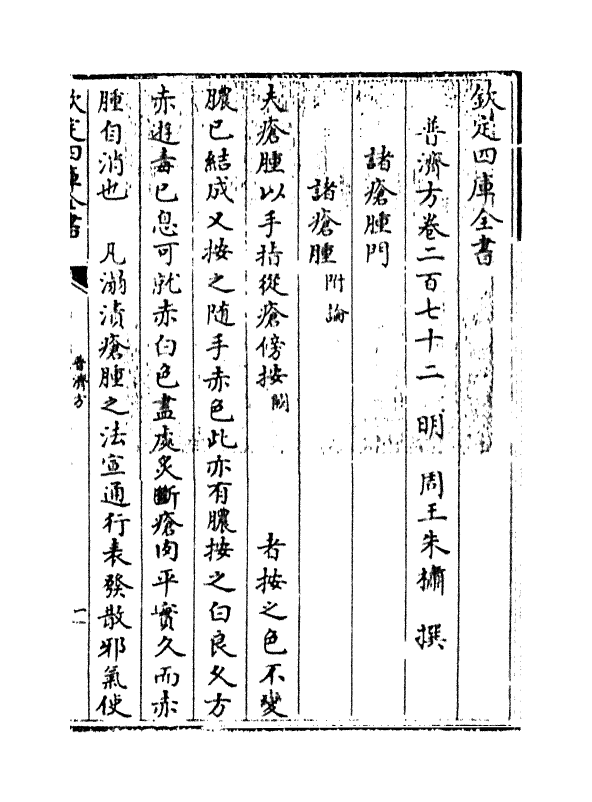 欽定四庫全書
普濟方卷二百七十二 明 周王朱橚 撰
諸瘡腫門
諸瘡腫附論
夫瘡腫以手指從瘡傍按闕 者按之色不變
膿已結成又按之随手赤色此亦有膿按之白良久方
赤遊毒已息可就赤白色盡處灸斷瘡肉平實久而赤
腫自消也 凡溺漬瘡腫之法宣通行表發散邪氣使
欽定四庫全書
普濟方
一